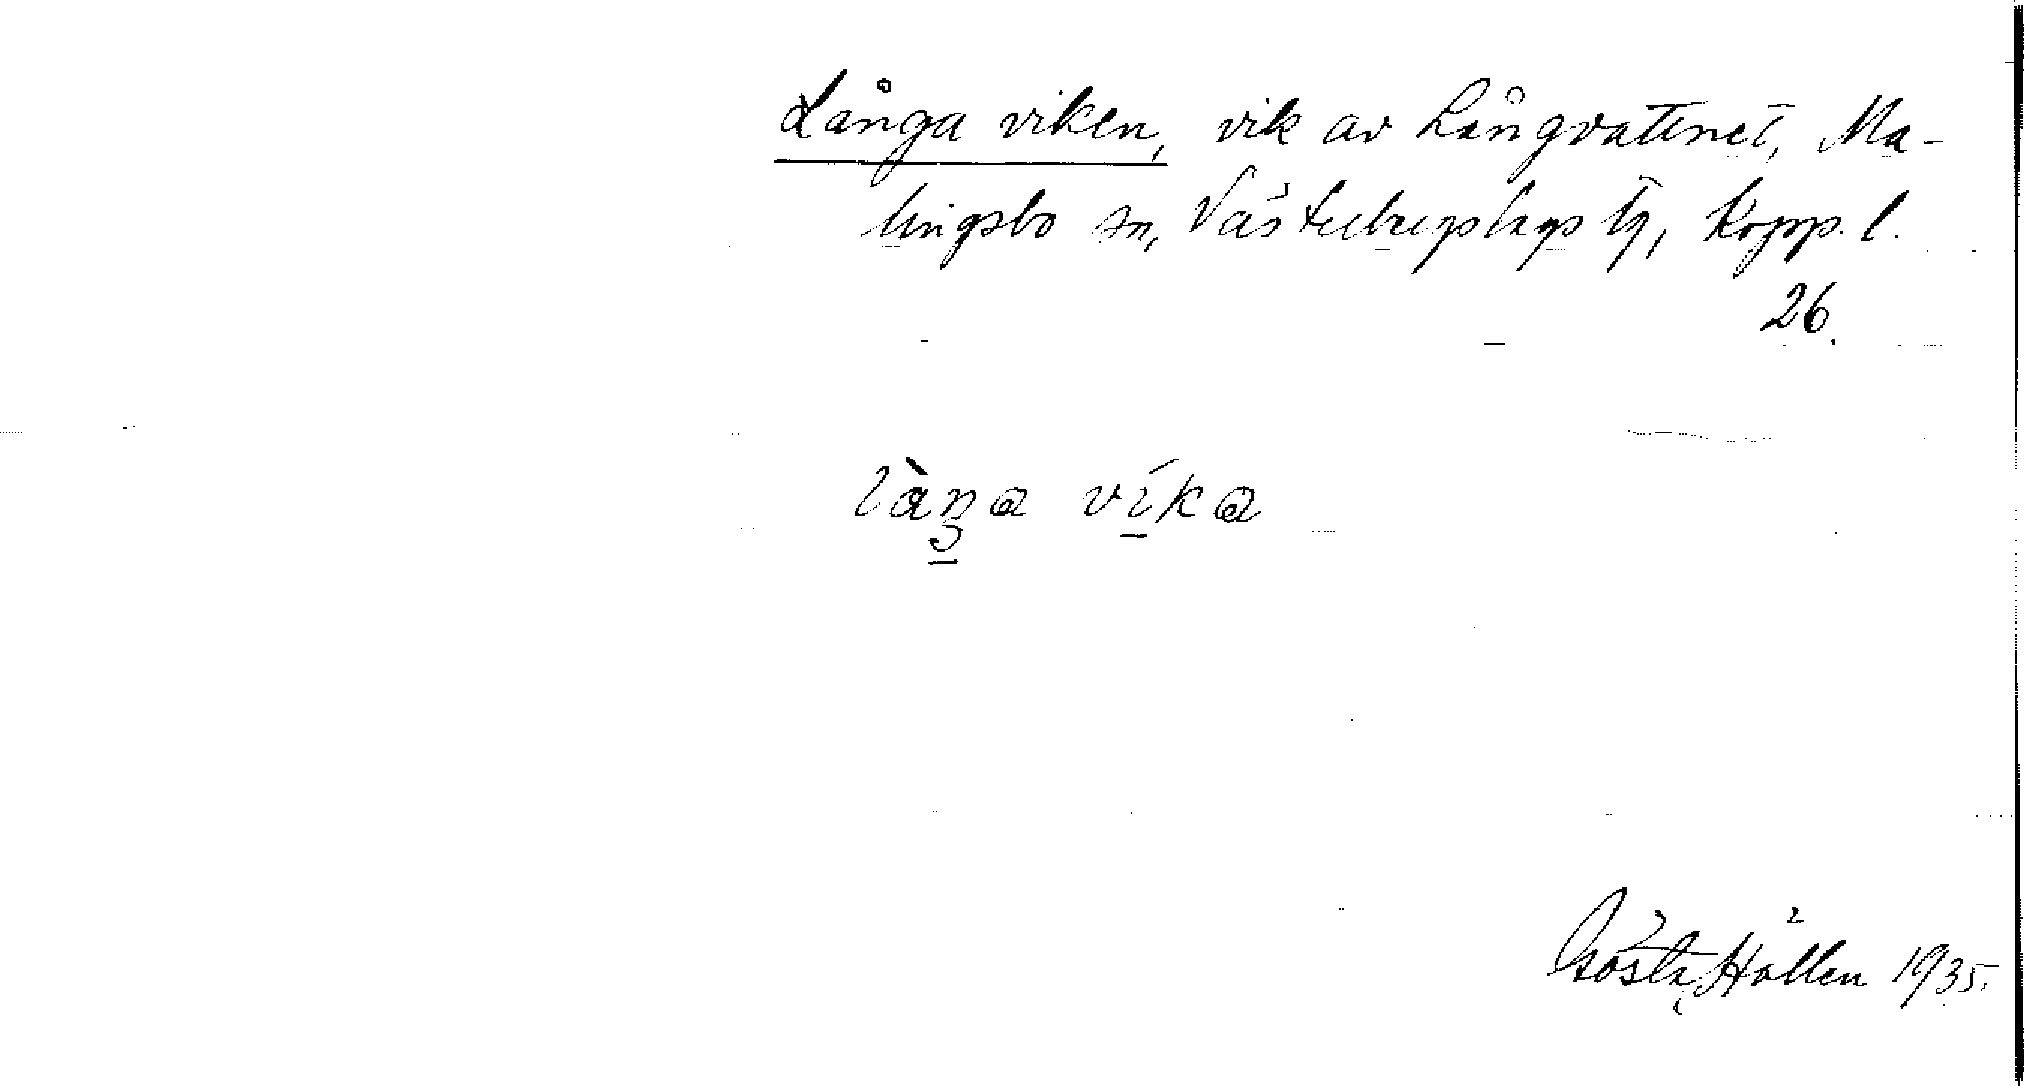 Långa viken, vik av Långvattnet, Ma-
lingsbo sn, Västerbergslags tg, Kopp. l.
26.
làŋa víka
Gösta Höllen 1935.